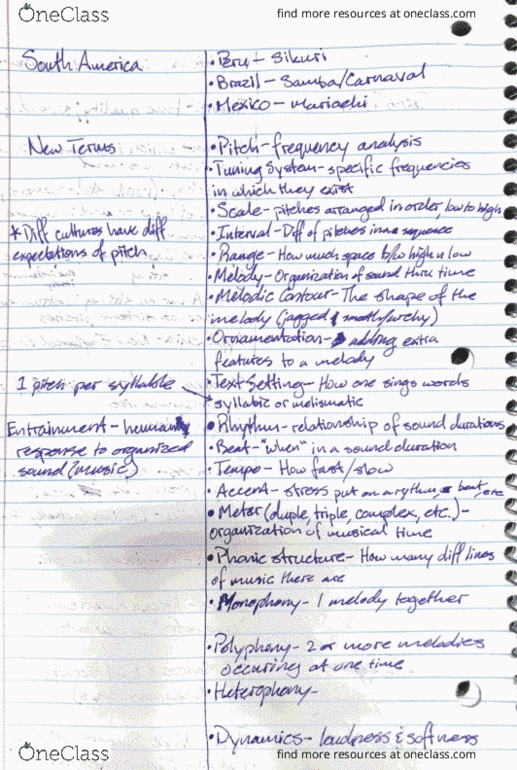 OneClass
find more resources at oneclass.com
South America
• Peru - Sikuri
• Brazil - Samba/Carnaval
• Mexico - Mariachi
New Terms
• Pitch - frequency analysis
• Tuning System - specific frequencies
in which they exist
• Scale - pitches arranged in order, low to high
* Diff cultures have diff
expectations of pitch
• Interval - Diff of pitches in a sequence
• Range - How much space b/w high n low
• Melody - Organization of sound thru time
• Melodic Contour - The shape of the
melody (jagged, smooth/archy)
• Ornamentation - adding extra
features to a melody
1 pitch per syllable
• Text Setting - How one sings words
syllabic or melismatic
Entrainment - human
response to organized
sound (music)
• Rhythm - relationship of sound durations
• Beat - "when" in a sound duration
• Tempo - How fast/slow
• Accent - stress put on a rythm, beat, etc
• Meter (duple, triple, complex, etc.) -
organization of musical time
• Phonic structure - How many diff lines
of music there are
• Monophony - 1 melody together
• Polyphony - 2 or more melodies
occuring at one time.
• Heterophony -
• Dynamics - loudness & softness
OneClass
find more resources at oneclass.com